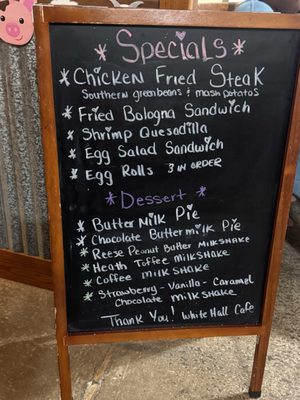 * Specials *
* Chicken Fried Steak
Southern greenbeans & mash potatos
* Fried Bologna Sandwich
* Shrimp Quesadilla
* Egg Salad Sandwich
* Egg Rolls 3 in order
* Dessert *
* Butter Milk Pie
* Chocolate Butter milk Pie
* Reese Peanut Butter Milkshake
* Heath Toffee Milkshake
* Coffee milkshake
* Strawberry - Vanilla - Caramel
Chocolate milkshake
Thank You! White Hall Cafe